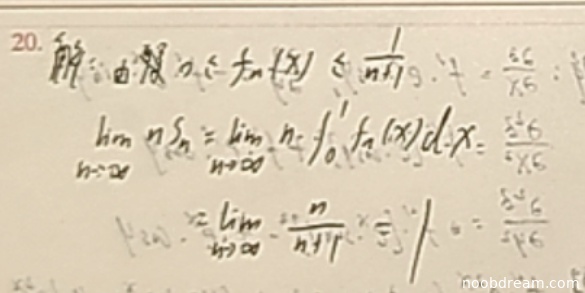 20. 解：由题 0 ≤ fn(x) ≤ 1/(n+1)
lim n→∞ n Sn = lim n→∞ n·∫₀¹ fn(x)dx =
= lim n→∞ n/(n+1) = 1
noobdream.com